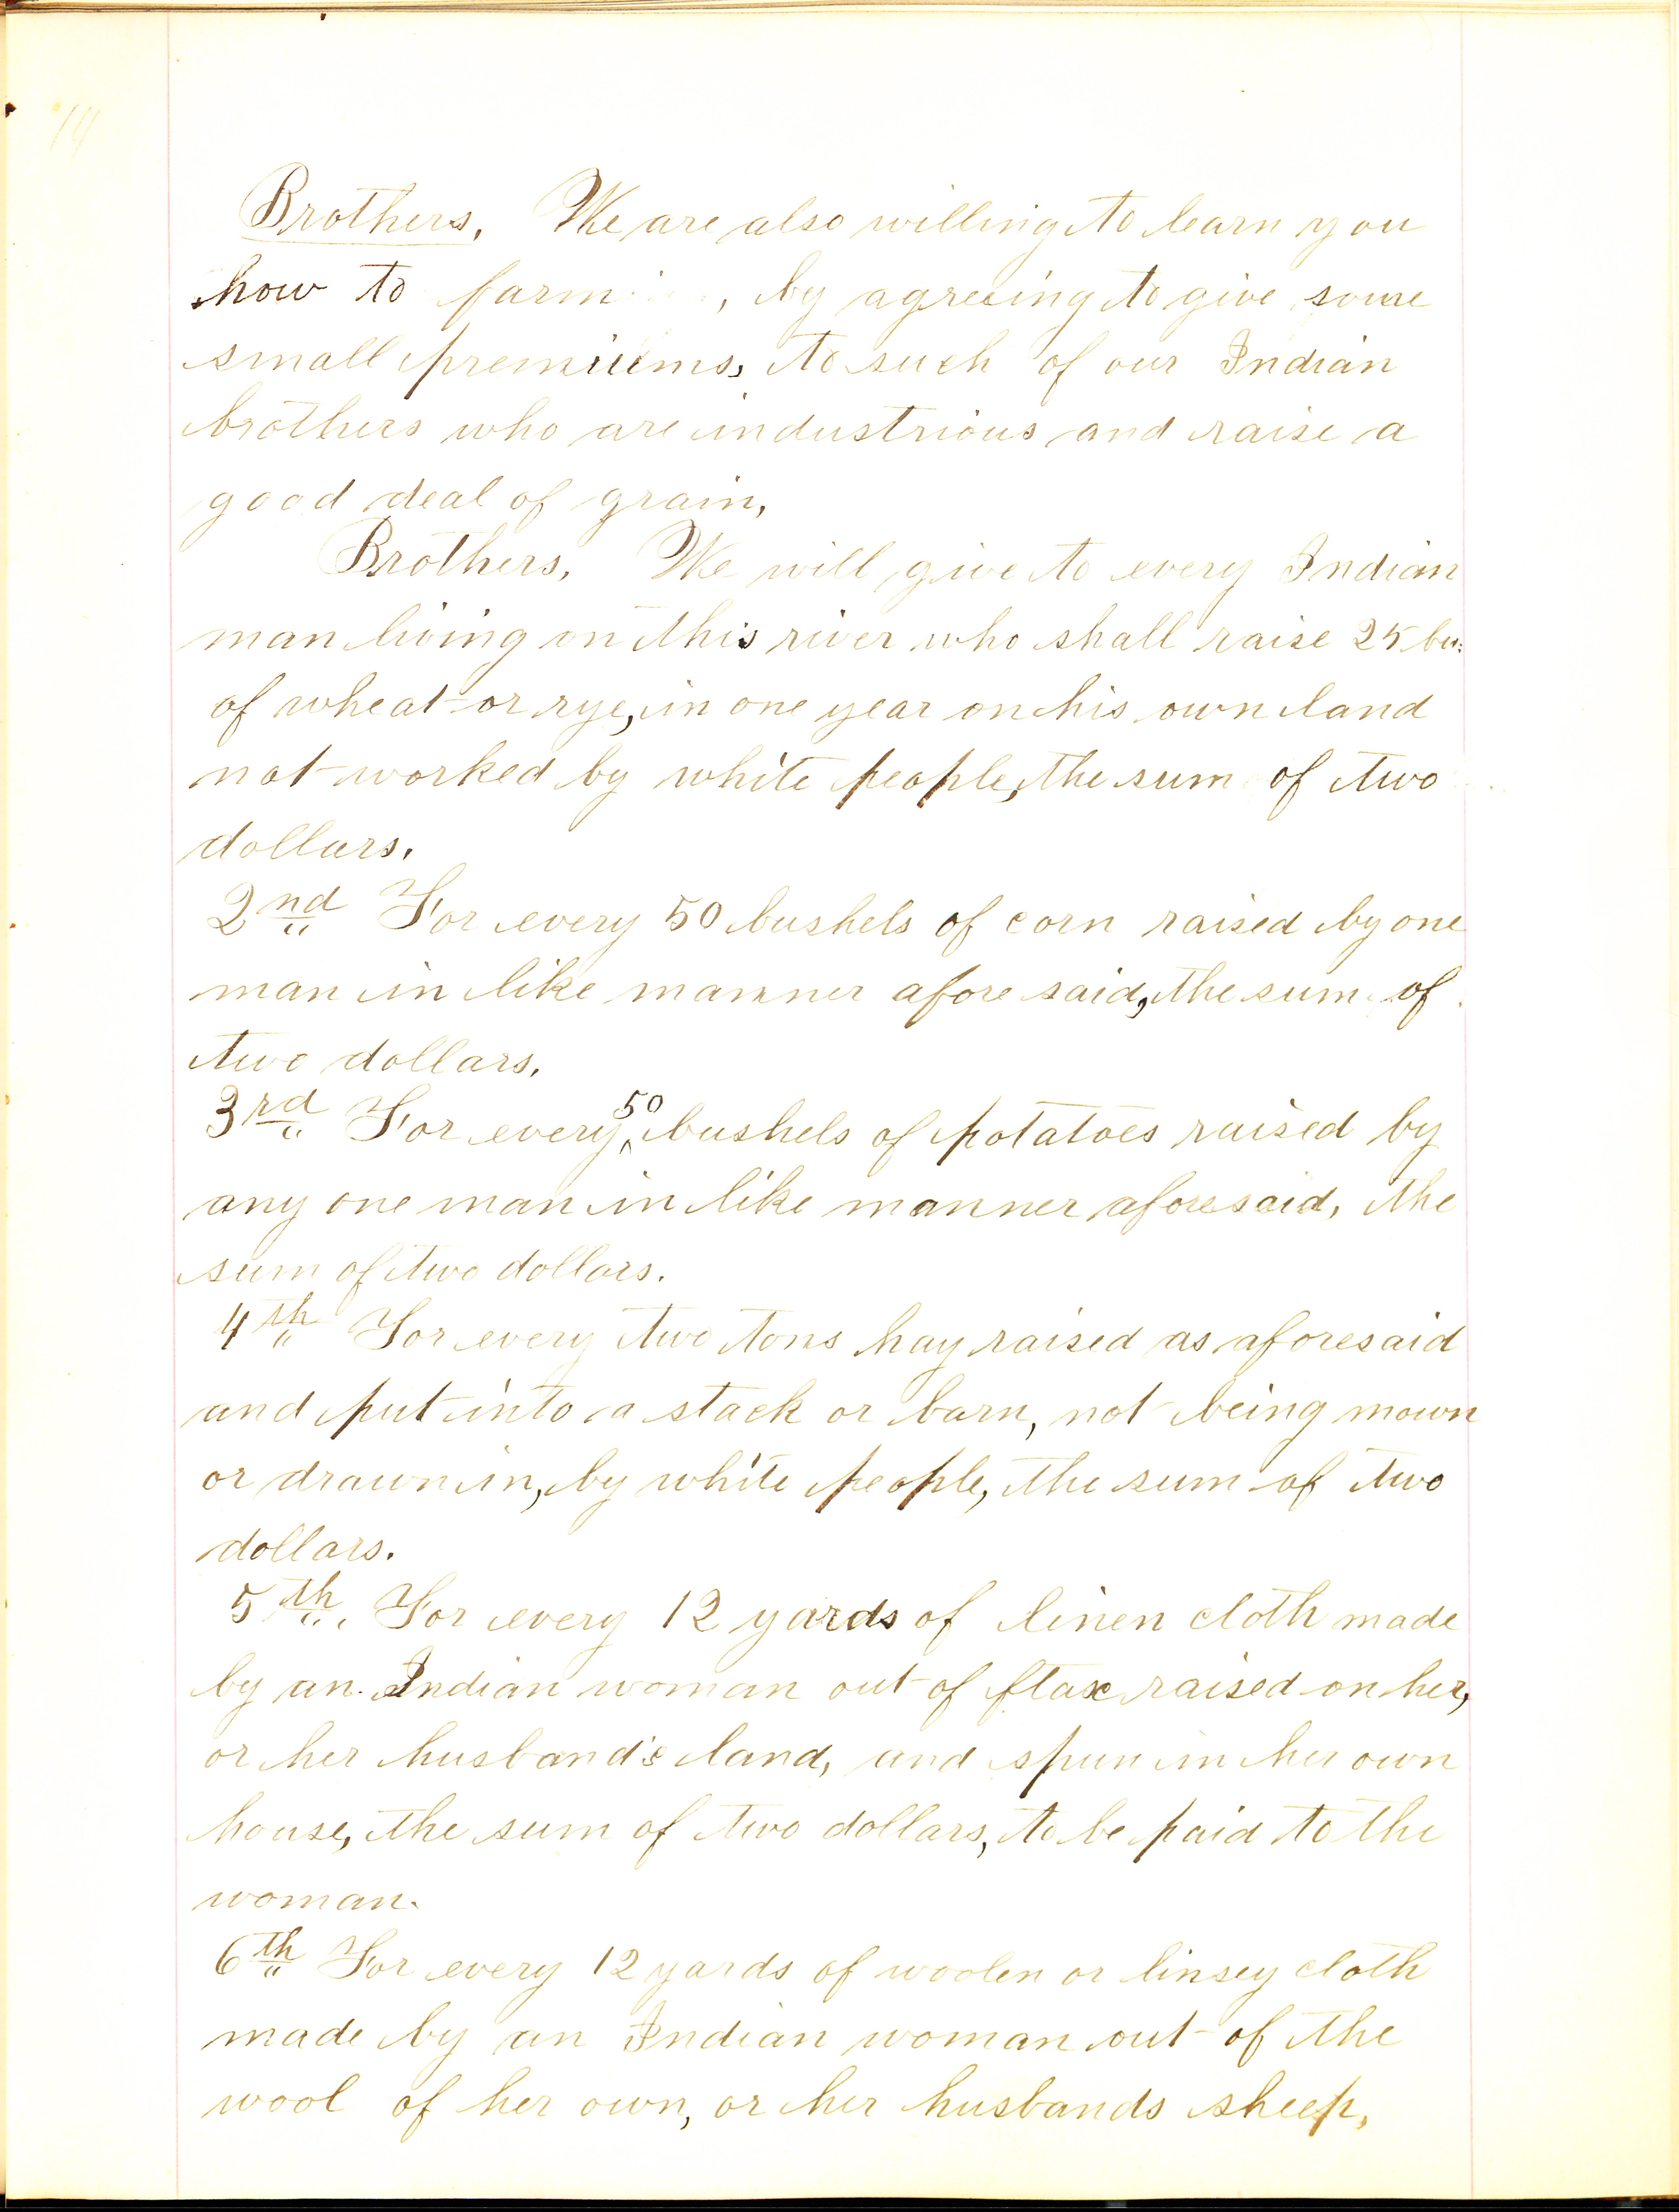 14
Brothers, We are also willing to learn you
how to farm, by agreeing to give some
small premiums, to such of our Indian
brothers who are industrious and raise a
good deal of grain,
Brothers, We will give to every Indian
man living on this river who shall raise 25 bu:
of wheat or rye, in one year on his own land
not worked by white people, the sum of two
dollars.
2nd For every 50 bushels of corn raised by one
man in like manner afore said, the sum of
two dollars.
3rd For every 50 bushels of potatoes raised by
any one man in like manner aforesaid, the
sum of two dollars.
4th For every two tons hay raised as aforesaid
and put into a stack or barn, not being mown
or drawn in, by white people, the sum of two
dollars.
5th. For every 12 yards of linen cloth made
by an Indian woman out of flax raised on her,
or her husband's land, and spun in her own
house, the sum of two dollars, to be paid to the
woman.
6th For every 12 yards of woolen or linsey cloth
made by an Indian woman out of the
wool of her own, or her husbands sheep,